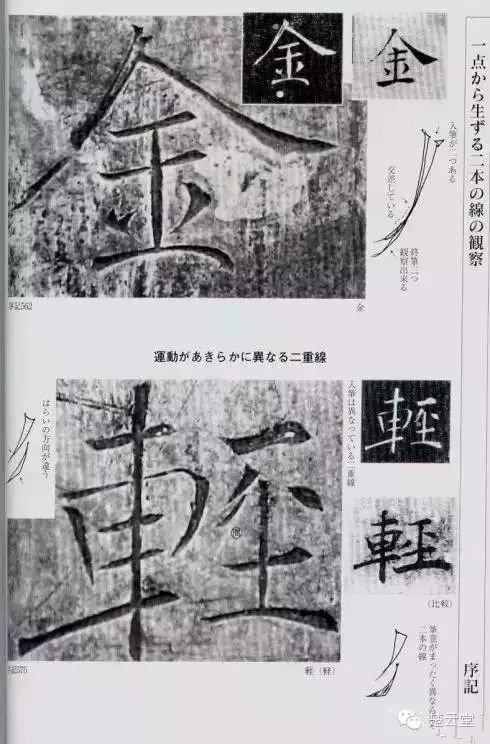 一点から生ずる二本の線の観察
金
金
金
入筆が二つある
交差している
終筆三つ
観察出来る
序記562
金
運動があきらかに異なる二重線
はらいの方向が違う
輕
入筆は異なっている二重線
輕
輕
(比較)
序記575
軽（軽）
筆意がまったく異なる
二本の線
序記
楚云堂